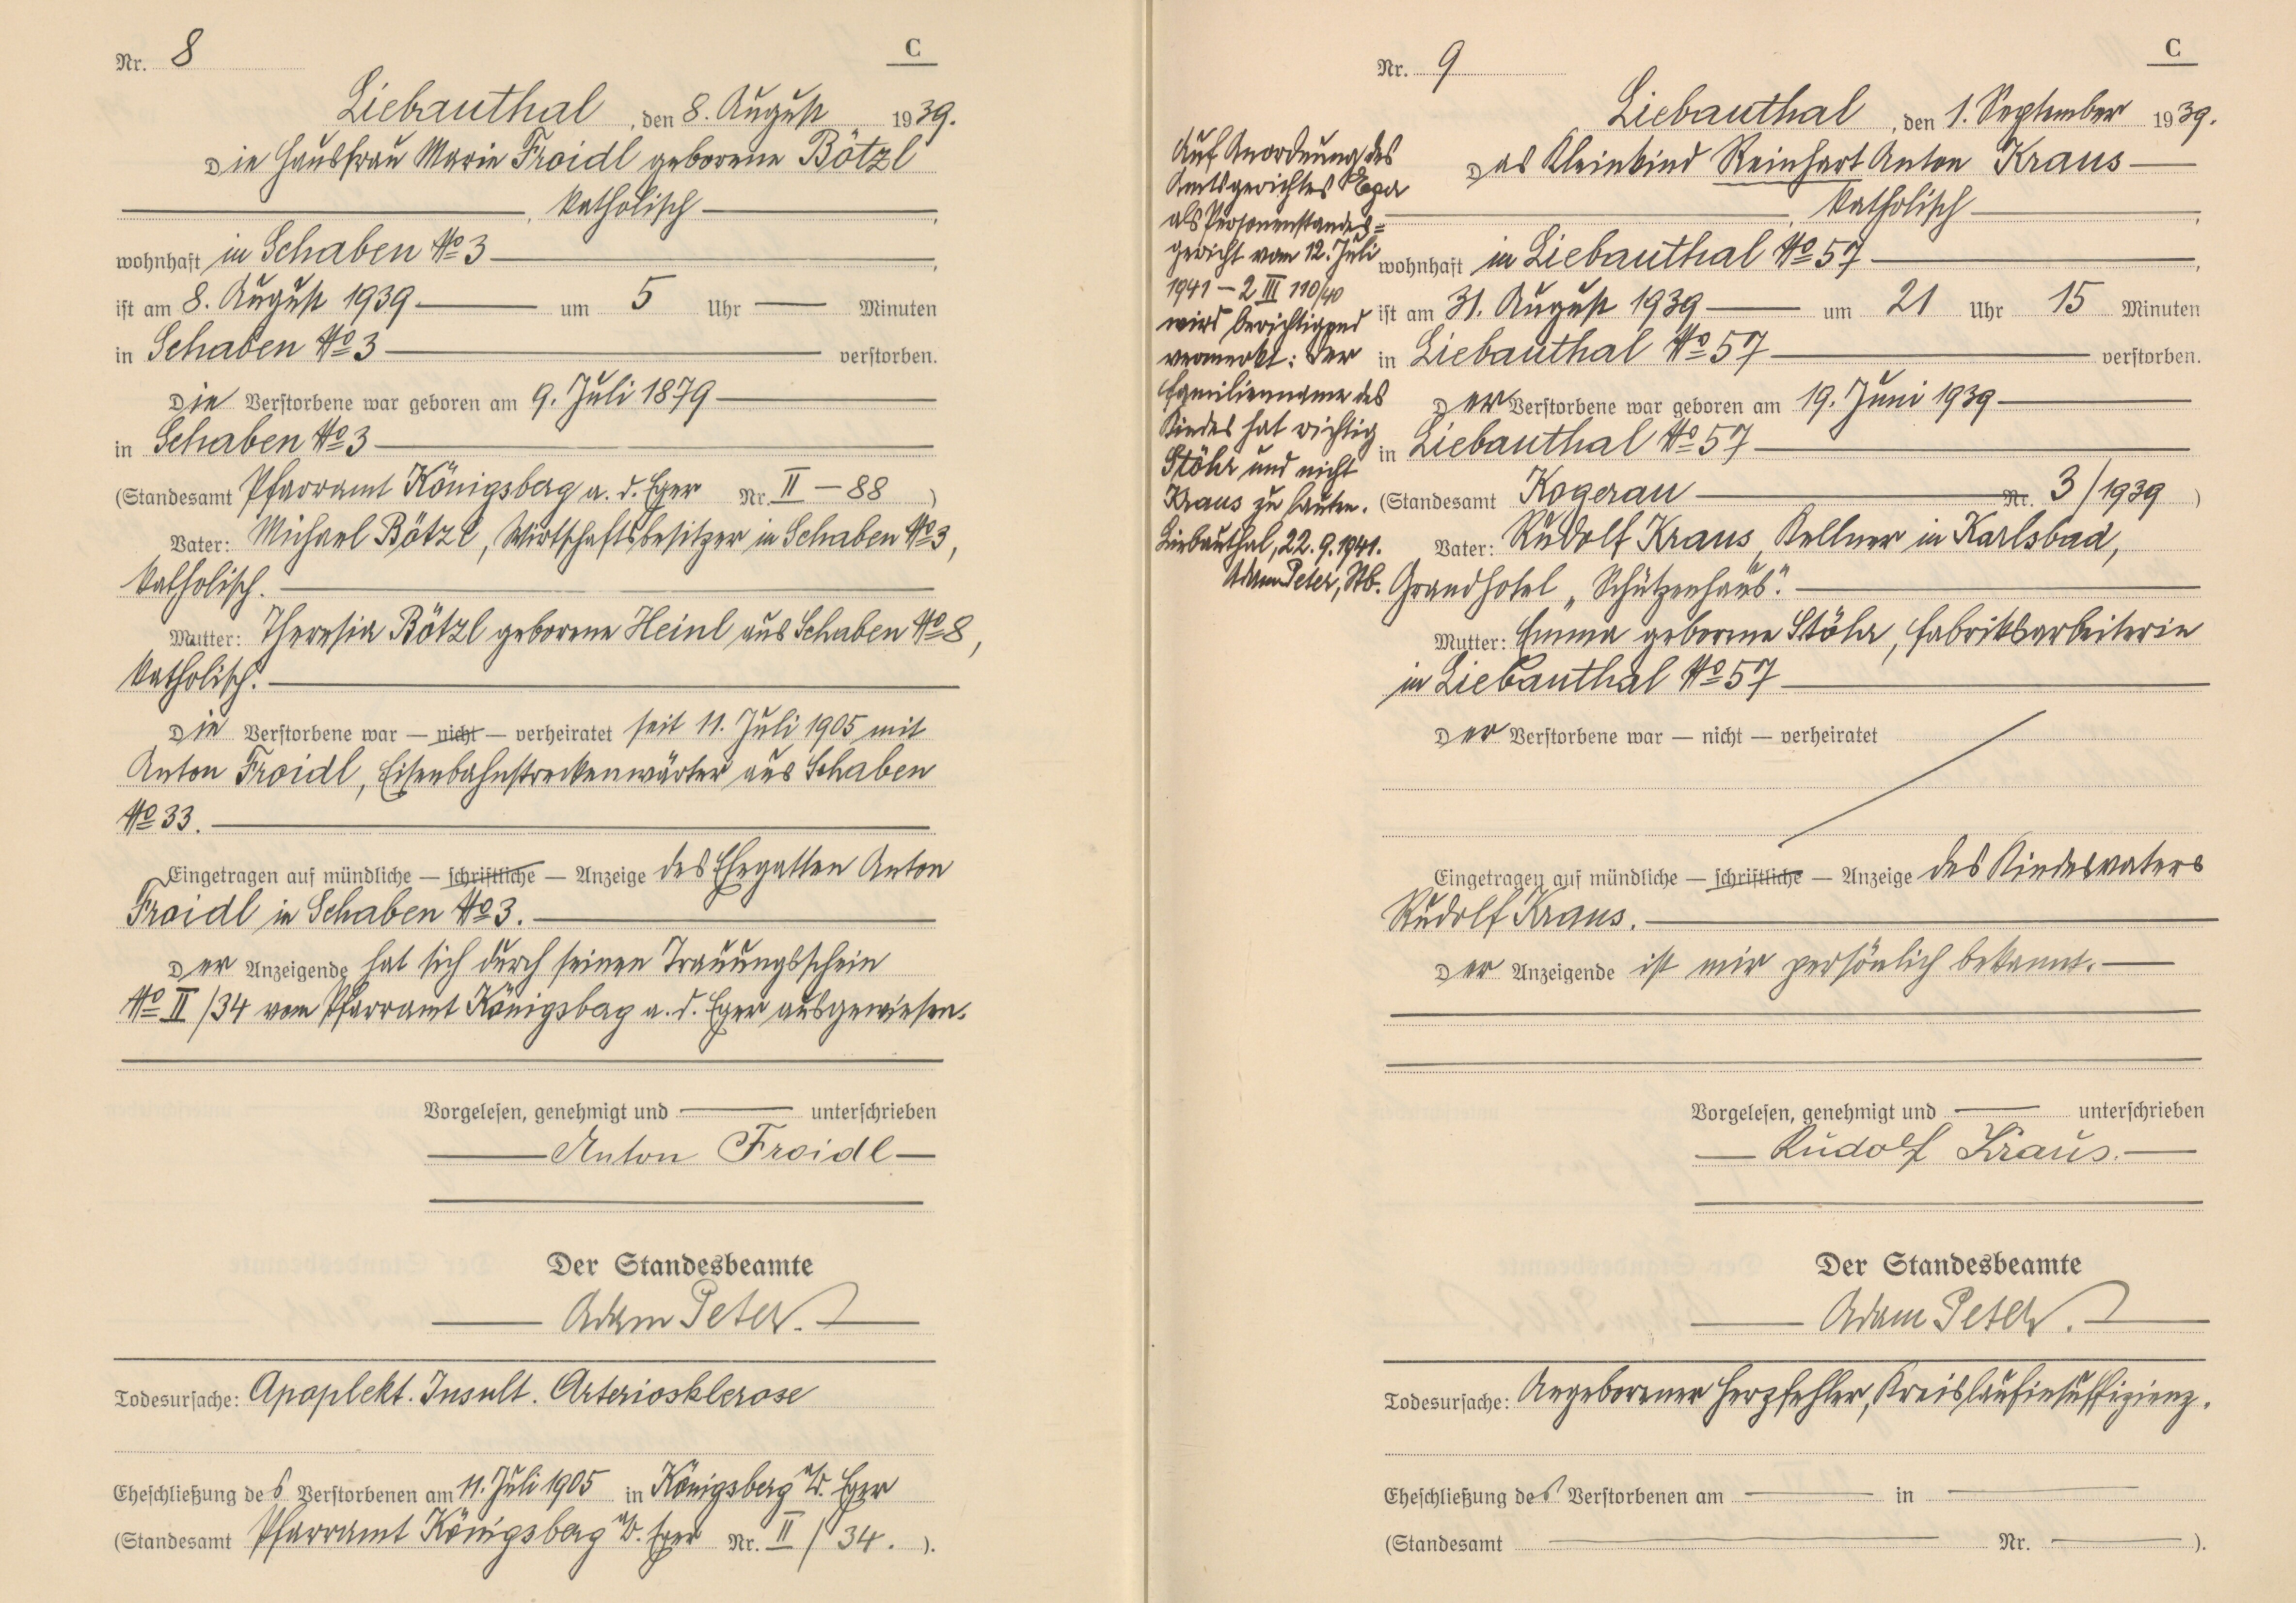 Nr. 8
C
Liebauthal, den 8. August 1939.
Die Hausfrau Marie Froidl geborene Bötzl
, katholisch,
wohnhaft in Schaben No 3,
ist am 8. August 1939 um 5 Uhr Minuten
in Schaben No 3 verstorben.
Die Verstorbene war geboren am 9. Juli 1879
in Schaben No 3
(Standesamt Pfarramt Königsberg a. d. Eger Nr. II – 88)
Vater: Michael Bötzl, Wirtschaftsbesitzer in Schaben No 3,
katholisch.
Mutter: Theresia Bötzl geborene Heinl aus Schaben No 8,
katholisch.
Die Verstorbene war — nicht — verheiratet seit 11. Juli 1905 mit
Anton Froidl, Eisenbahnstreckenwärter aus Schaben
No 33.
Eingetragen auf mündliche — schriftliche — Anzeige des Ehegatten Anton
Froidl in Schaben No 3.
Der Anzeigende hat sich durch seinen Trauungsschein
No II/34 vom Pfarramt Königsberg a. d. Eger ausgewiesen.
Vorgelesen, genehmigt und unterschrieben
Anton Froidl
Der Standesbeamte
Adam Peter.
Todesursache: Apoplekt. Insult. Arteriosklerose
Eheschließung des Verstorbenen am 11. Juli 1905 in Königsberg a/d. Eger
(Standesamt Pfarramt Königsberg a/d. Eger Nr. II/34.).
Nr. 9
C
Liebauthal, den 1. September 1939.
Das Kleinkind Reinhart Anton Kraus
, katholisch,
wohnhaft in Liebauthal No 57,
ist am 31. August 1939 um 21 Uhr 15 Minuten
in Liebauthal No 57 verstorben.
Der Verstorbene war geboren am 19. Juni 1939
in Liebauthal No 57
(Standesamt Kogerau Nr. 3/1939)
Vater: Rudolf Kraus, Kellner in Karlsbad,
Grandhotel „Schützenhaus".
Mutter: Emma geborene Stöhr, Fabriksarbeiterin
in Liebauthal No 57
Der Verstorbene war — nicht — verheiratet
Eingetragen auf mündliche — schriftliche — Anzeige des Kindesvaters
Rudolf Kraus.
Der Anzeigende ist mir persönlich bekannt.
Vorgelesen, genehmigt und unterschrieben
Rudolf Kraus.
Der Standesbeamte
Adam Peter.
Todesursache: Angeborener Herzfehler, Kreislaufinsuffizienz.
Eheschließung des Verstorbenen am in
(Standesamt Nr. ).
Auf Anordnung des
Amtsgerichtes Eger
als Personenstands=
gericht vom 12. Juli
1941 – 2 III 110/40
wird berichtigend
vermerkt: Der
Familienname des
Kindes hat richtig
Stöhr und nicht
Kraus zu lauten.
Liebauthal, 22.9.1941.
Adam Peter, Stb.